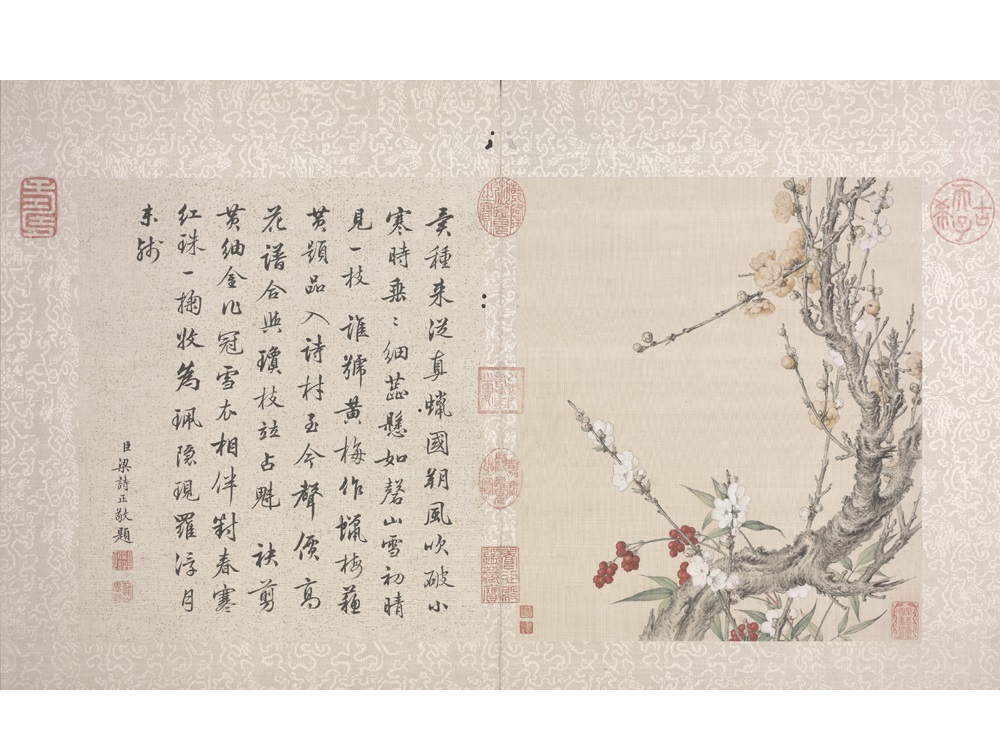 古希天子
異種来從真蠟國朔風吹破小
寒時垂〻細蕋懸如磬山雪初晴
見一枝 誰號黃梅作蠟梅蘇
黃題品入詩材至今聲價高
花譜合與瓊枝竝占魁 袂剪
黃紬金作冠雪衣相伴對春寒
紅珠一掬收為珮隱現羅浮月
未殘
臣梁詩正敬題
壽